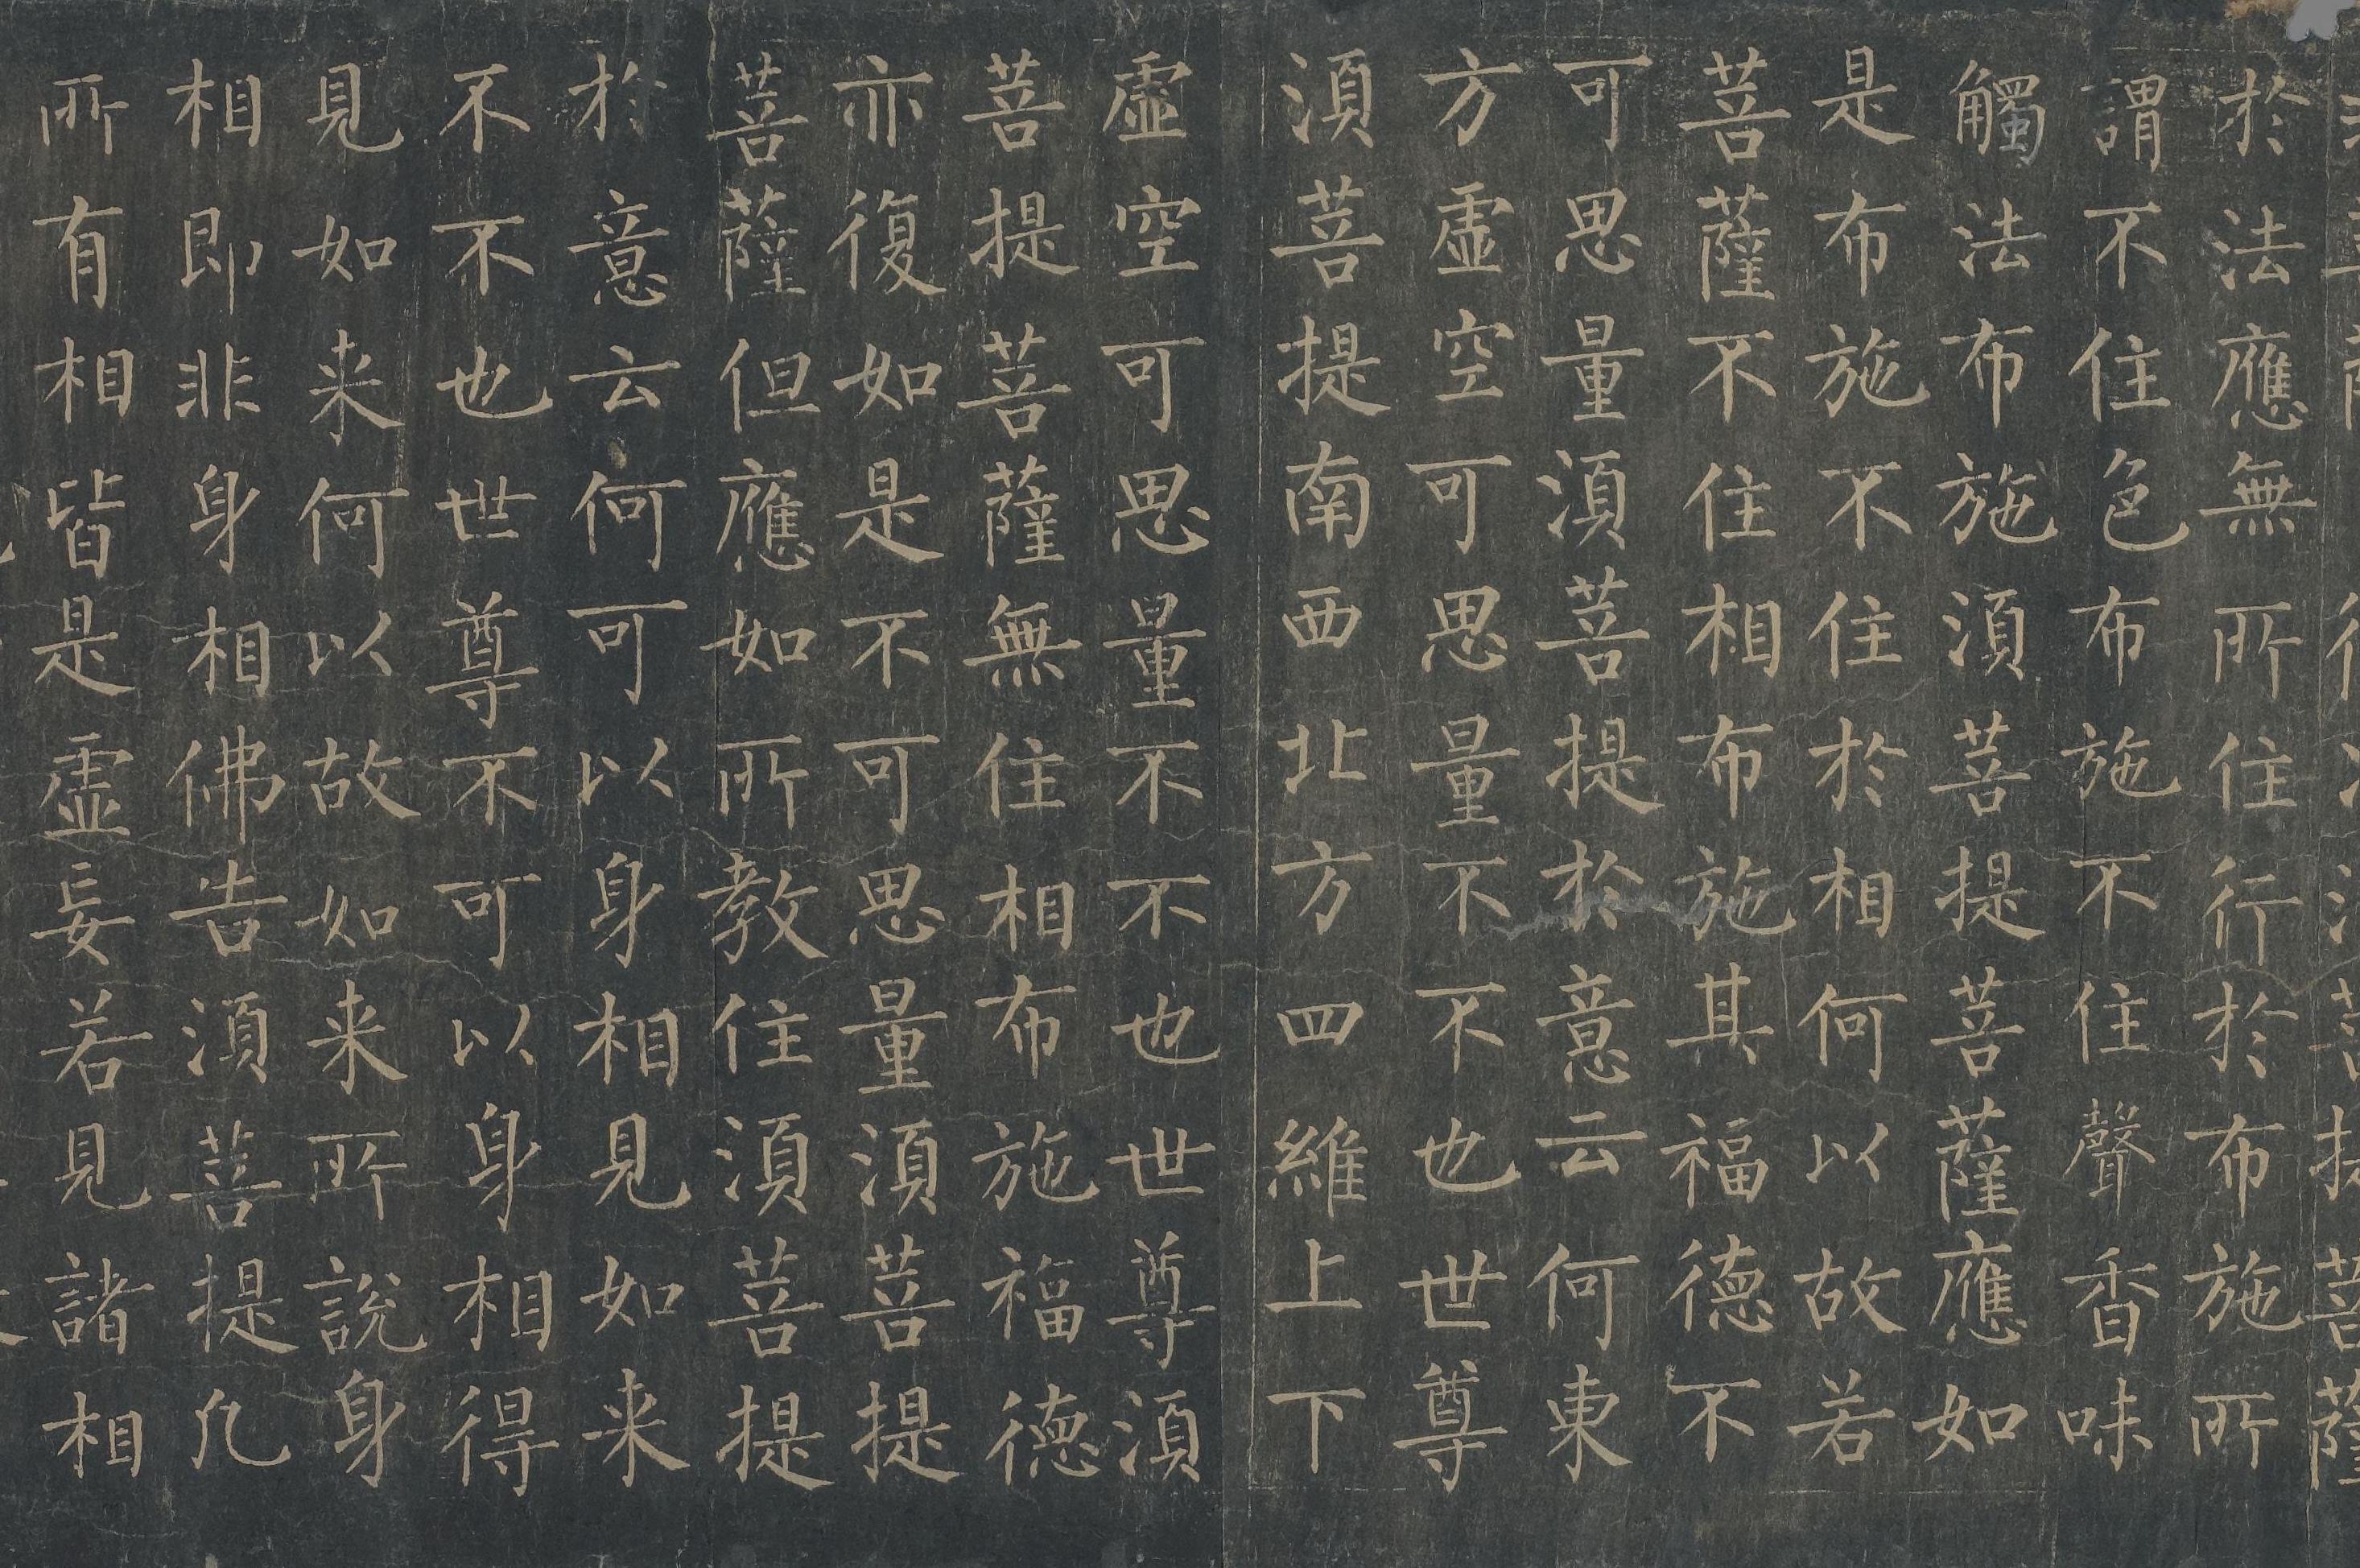 於法應無所住行於布施所
謂不住色布施不住聲香味
觸法布施湏菩提菩薩應如
是布施不住於相何以故若
菩薩不住相布施其福德不
可思量湏菩提於意云何東
方虛空可思量不不也世尊
湏菩提南西北方四維上下
虛空可思量不不也世尊湏
菩提菩薩無住相布施福德
亦復如是不可思量湏菩提
菩薩但應如所教住湏菩提
於意云何可以身相見如来
不不也世尊不可以身相得
見如来何以故如来所說身
相即非身相佛告湏菩提凡
所有相皆是虛妄若見諸相